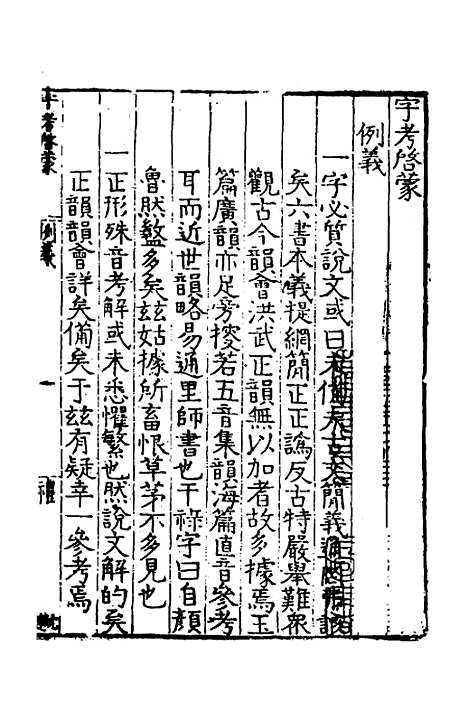 字考啓蒙
例義
一字必質說文或曰未備矣古文簡義
矣六書本義提綱簡正正譌反古特嚴舉難眾
觀古今韻會洪武正韻無以加者故多據焉玉
篇廣韻亦足旁捘若五音集韻海篇直音參考
耳而近世韻略易通里師書也干祿字曰自顏
魯然盭多矣玆姑據所畜恨草茅不多見也
一正形殊音考解或未悉懼繁也然說文解的矣
正韻韻會詳矣備矣于玆有疑幸一參考焉
字考啓蒙
例義
一